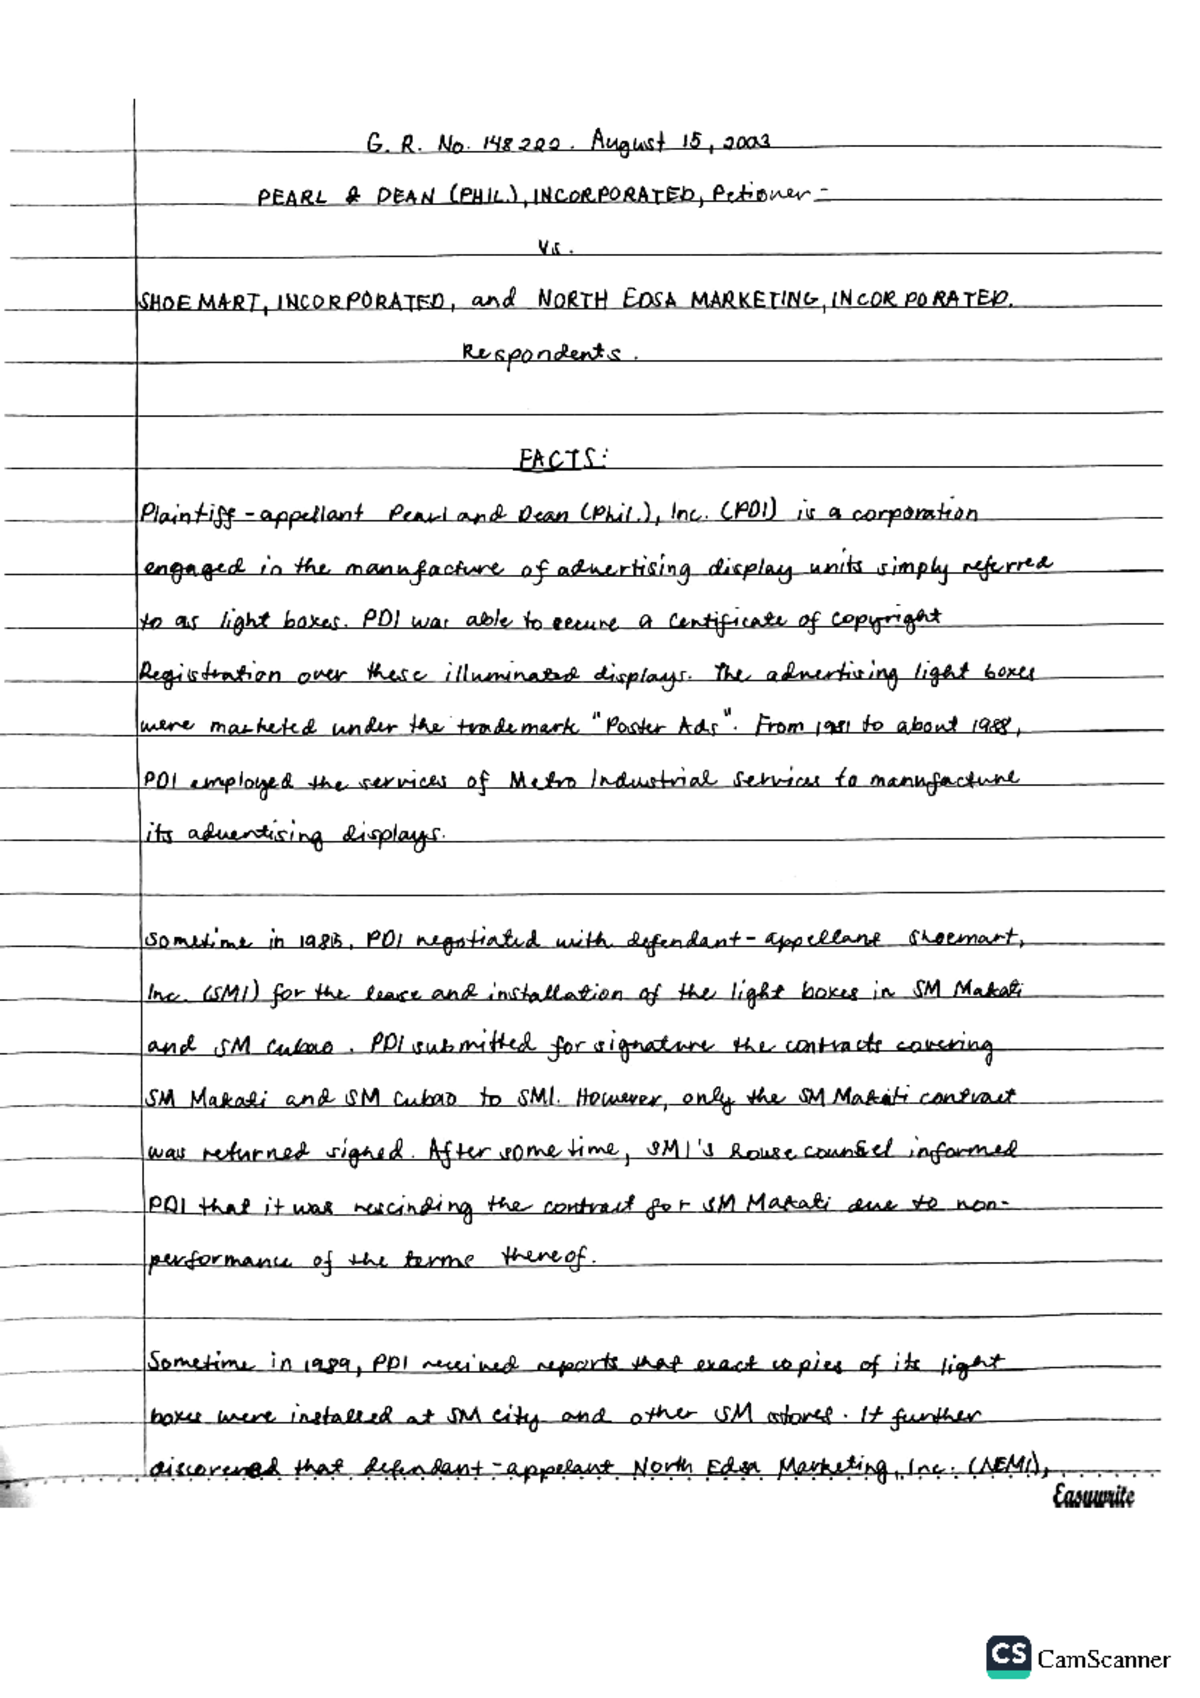 G. R. No. 148222. August 15, 2003
PEARL & DEAN (PHIL.), INCORPORATED, Petioner -
Vs.
SHOEMART, INCORPORATED, and NORTH EDSA MARKETING, INCORPORATED.
Respondents.
FACTS:
Plaintiff-appellant Pearl and Dean (Phil.), Inc. (PDI) is a corporation
engaged in the manufacture of advertising display units simply referred
to as light boxes. PDI was able to secure a Certificate of copyright
Registration over these illuminated displays. The advertising light boxes
were marketed under the trademark "Poster Ads". From 1981 to about 1988,
PDI employed the services of Metro Industrial Services to manufacture
its advertising displays.
Sometime in 1985, PDI negotiated with defendant-appellant Shoemart,
Inc. (SMI) for the lease and installation of the light boxes in SM Makati
and SM Cubao. PDI submitted for signature the contracts covering
SM Makati and SM Cubao to SMI. However, only the SM Makati contract
was returned signed. After sometime, SMI's house counsel informed
PDI that it was rescinding the contract for SM Makati due to non-
performance of the terms thereof.
Sometime in 1989, PDI received reports that exact copies of its light
boxes were installed at SM city and other SM stores. It further
discovered that defendant-appelant North Edsa Marketing, Inc. (NEMI),
Easywrite
CS CamScanner